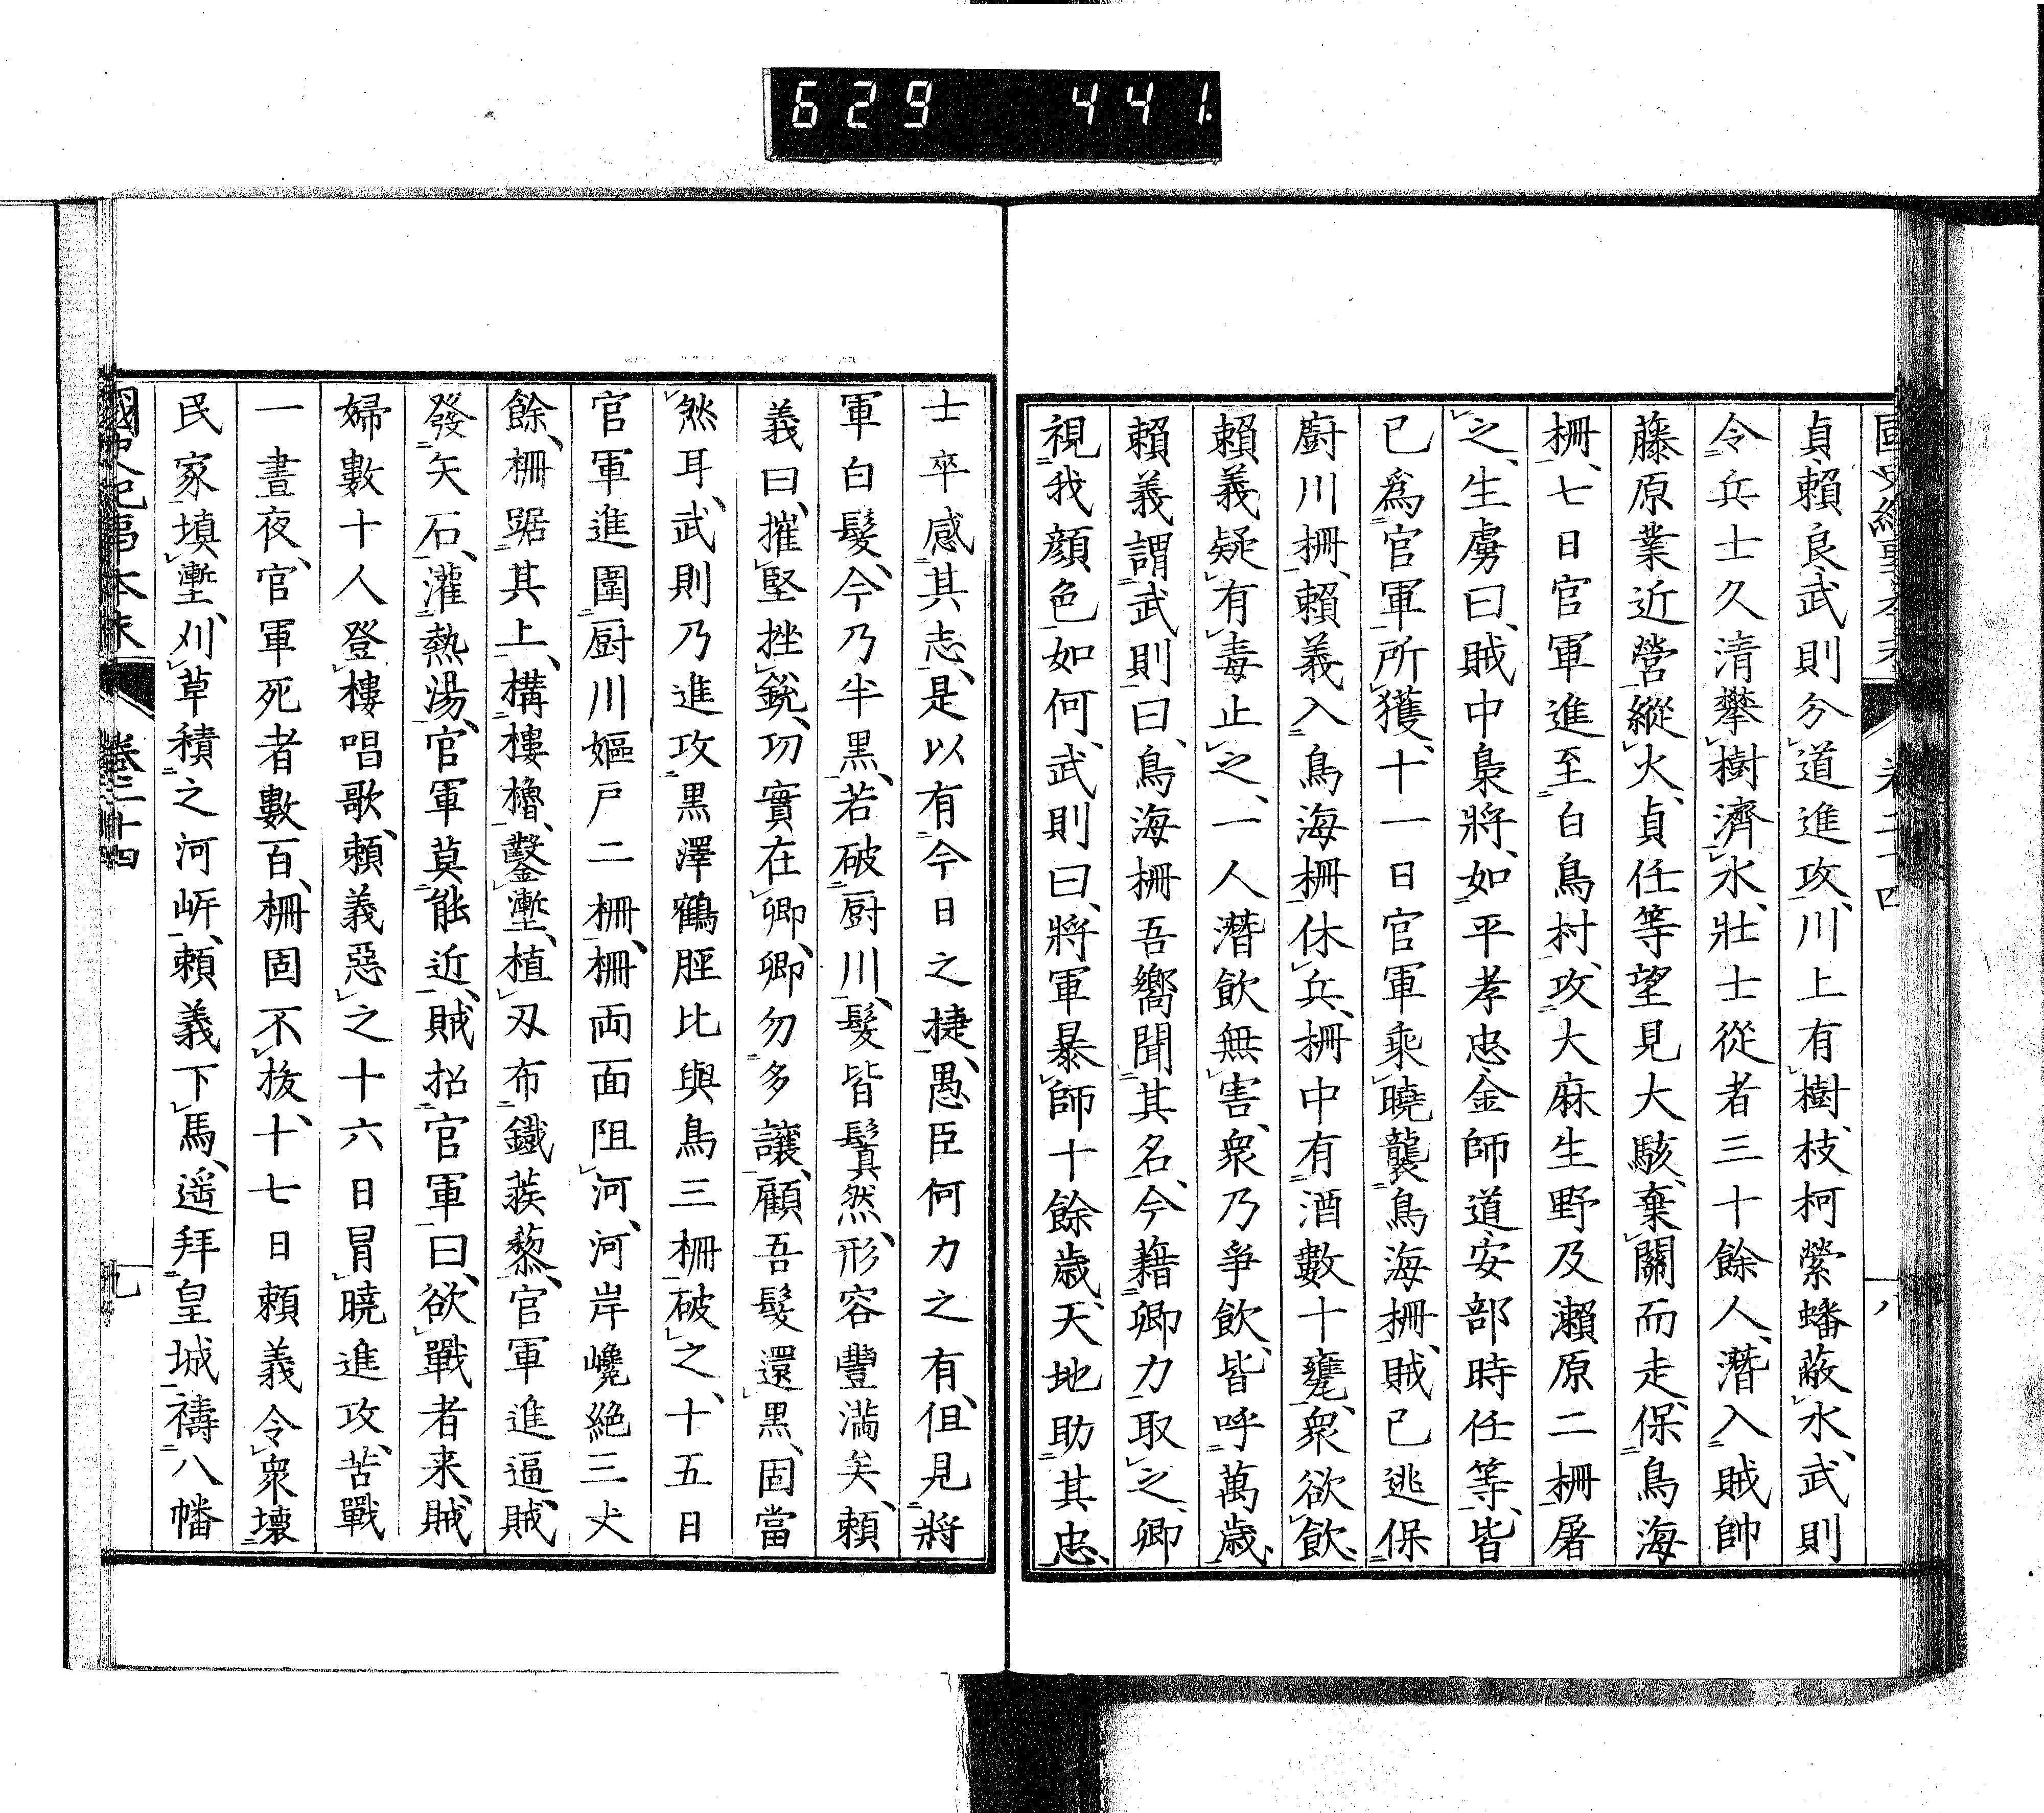 629 441
國史紀事本末 卷二十四 八
貞、賴良武則分道進攻、川上有樹、枝柯縈蟠蔽水、武則
令兵士久清攀樹濟水、壯士從者三十餘人、潛入賊帥
藤原業近營縱火、貞任等望見大駭、棄關而走、保鳥海
柵、七日官軍進至白鳥村、攻大麻生野及瀨原二柵屠
之、生虜曰、賊中梟將、如平孝忠金師道安部時任等、皆
已爲官軍所獲、十一日官軍乘曉襲鳥海柵、賊已逃保
廚川柵、賴義入鳥海柵休兵、柵中有酒數十甕、衆欲飲、
賴義疑有毒止之、一人潛飲無害、衆乃爭飲、皆呼萬歲、
賴義謂武則曰、鳥海柵吾嚮聞其名、今藉卿力取之、卿
視我顏色如何、武則曰、將軍暴師十餘歲、天地助其忠、
士卒感其志、是以有今日之捷、愚臣何力之有、但見將
軍白髮、今乃半黑、若破厨川、髮皆鬒然、形容豐滿矣、賴
義曰、摧堅挫銳、功實在卿、卿勿多讓、顧吾髮還黑、固當
然耳、武則乃進攻黑澤鶴脛比與鳥三柵破之、十五日
官軍進圍厨川嫗戶二柵、柵両面阻河、河岸巉絕三丈
餘、柵踞其上、構樓櫓、鑿塹、植刃布鐵蒺藜、官軍進逼、賊
發矢石、灌熱湯、官軍莫能近、賊招官軍曰、欲戰者来、賊
婦數十人登樓唱歌、賴義惡之十六日冒曉進攻、苦戰
一晝夜、官軍死者數百、柵固不拔、十七日賴義令衆壞
民家填塹、刈草積之河岍、賴義下馬、遥拜皇城、禱八幡
國史紀事本末 卷二十四 九